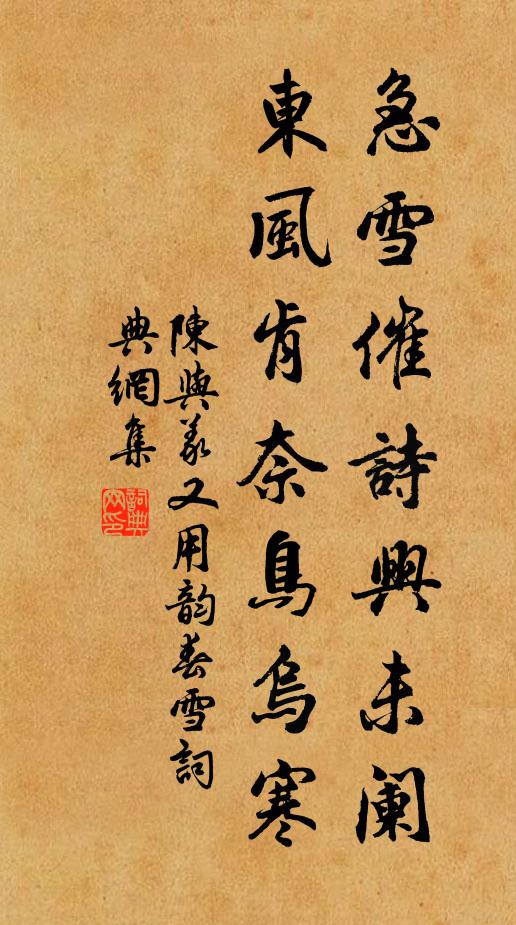 急雪催詩興未阑
東風肯奈鳥烏寒
陳與義又用韵春雪詞
典網集
詞典网印